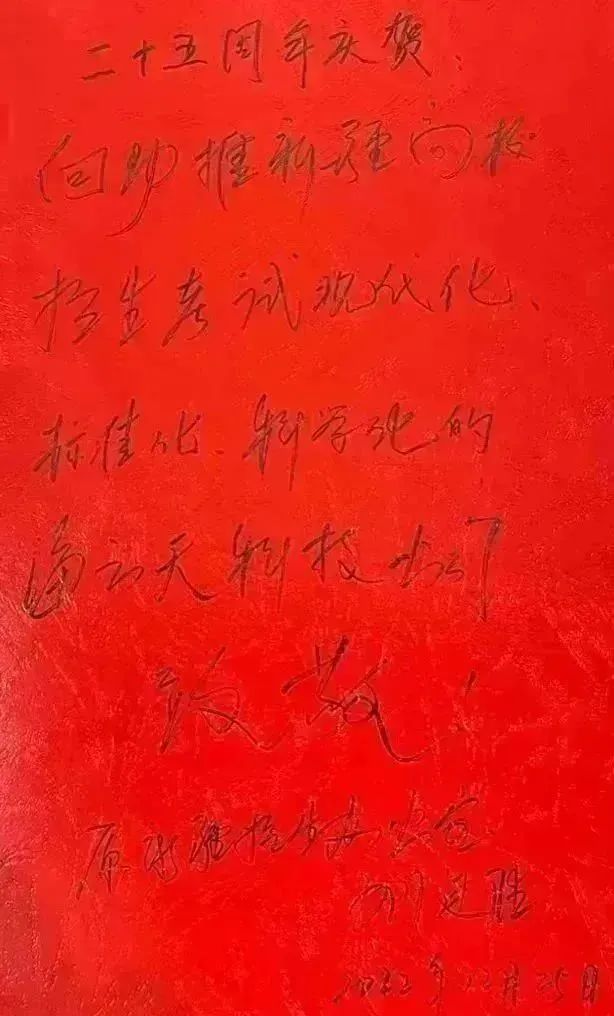 二十五周年庆贺：
向助推新疆高校
招生考试现代化、
标准化、科学化的
海云天科技公司
致敬！
原新疆招生办主任
刘建胜
2022年12月25日